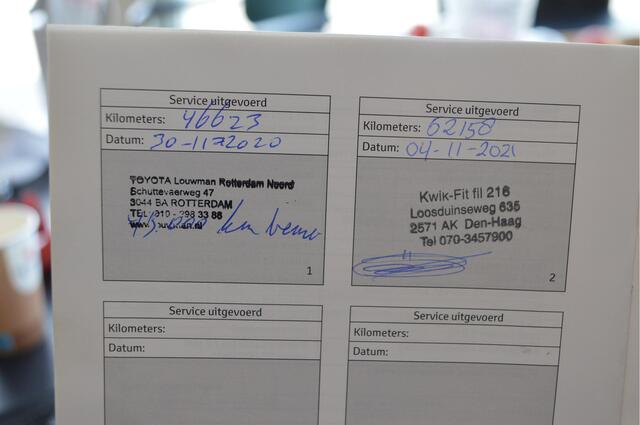 Service uitgevoerd
Kilometers: 46623
Datum: 30-11-2020
TOYOTA Louwman Rotterdam Noord
Schuttevaerweg 47
3044 BA ROTTERDAM
TEL 010 - 298 33 88
www.louwman.nl
45.000 km beurt
1
Service uitgevoerd
Kilometers: 62158
Datum: 04-11-2021
Kwik-Fit fil 216
Loosduinseweg 635
2571 AK Den-Haag
Tel 070-3457900
2
Service uitgevoerd
Kilometers:
Datum:
Service uitgevoerd
Kilometers:
Datum: